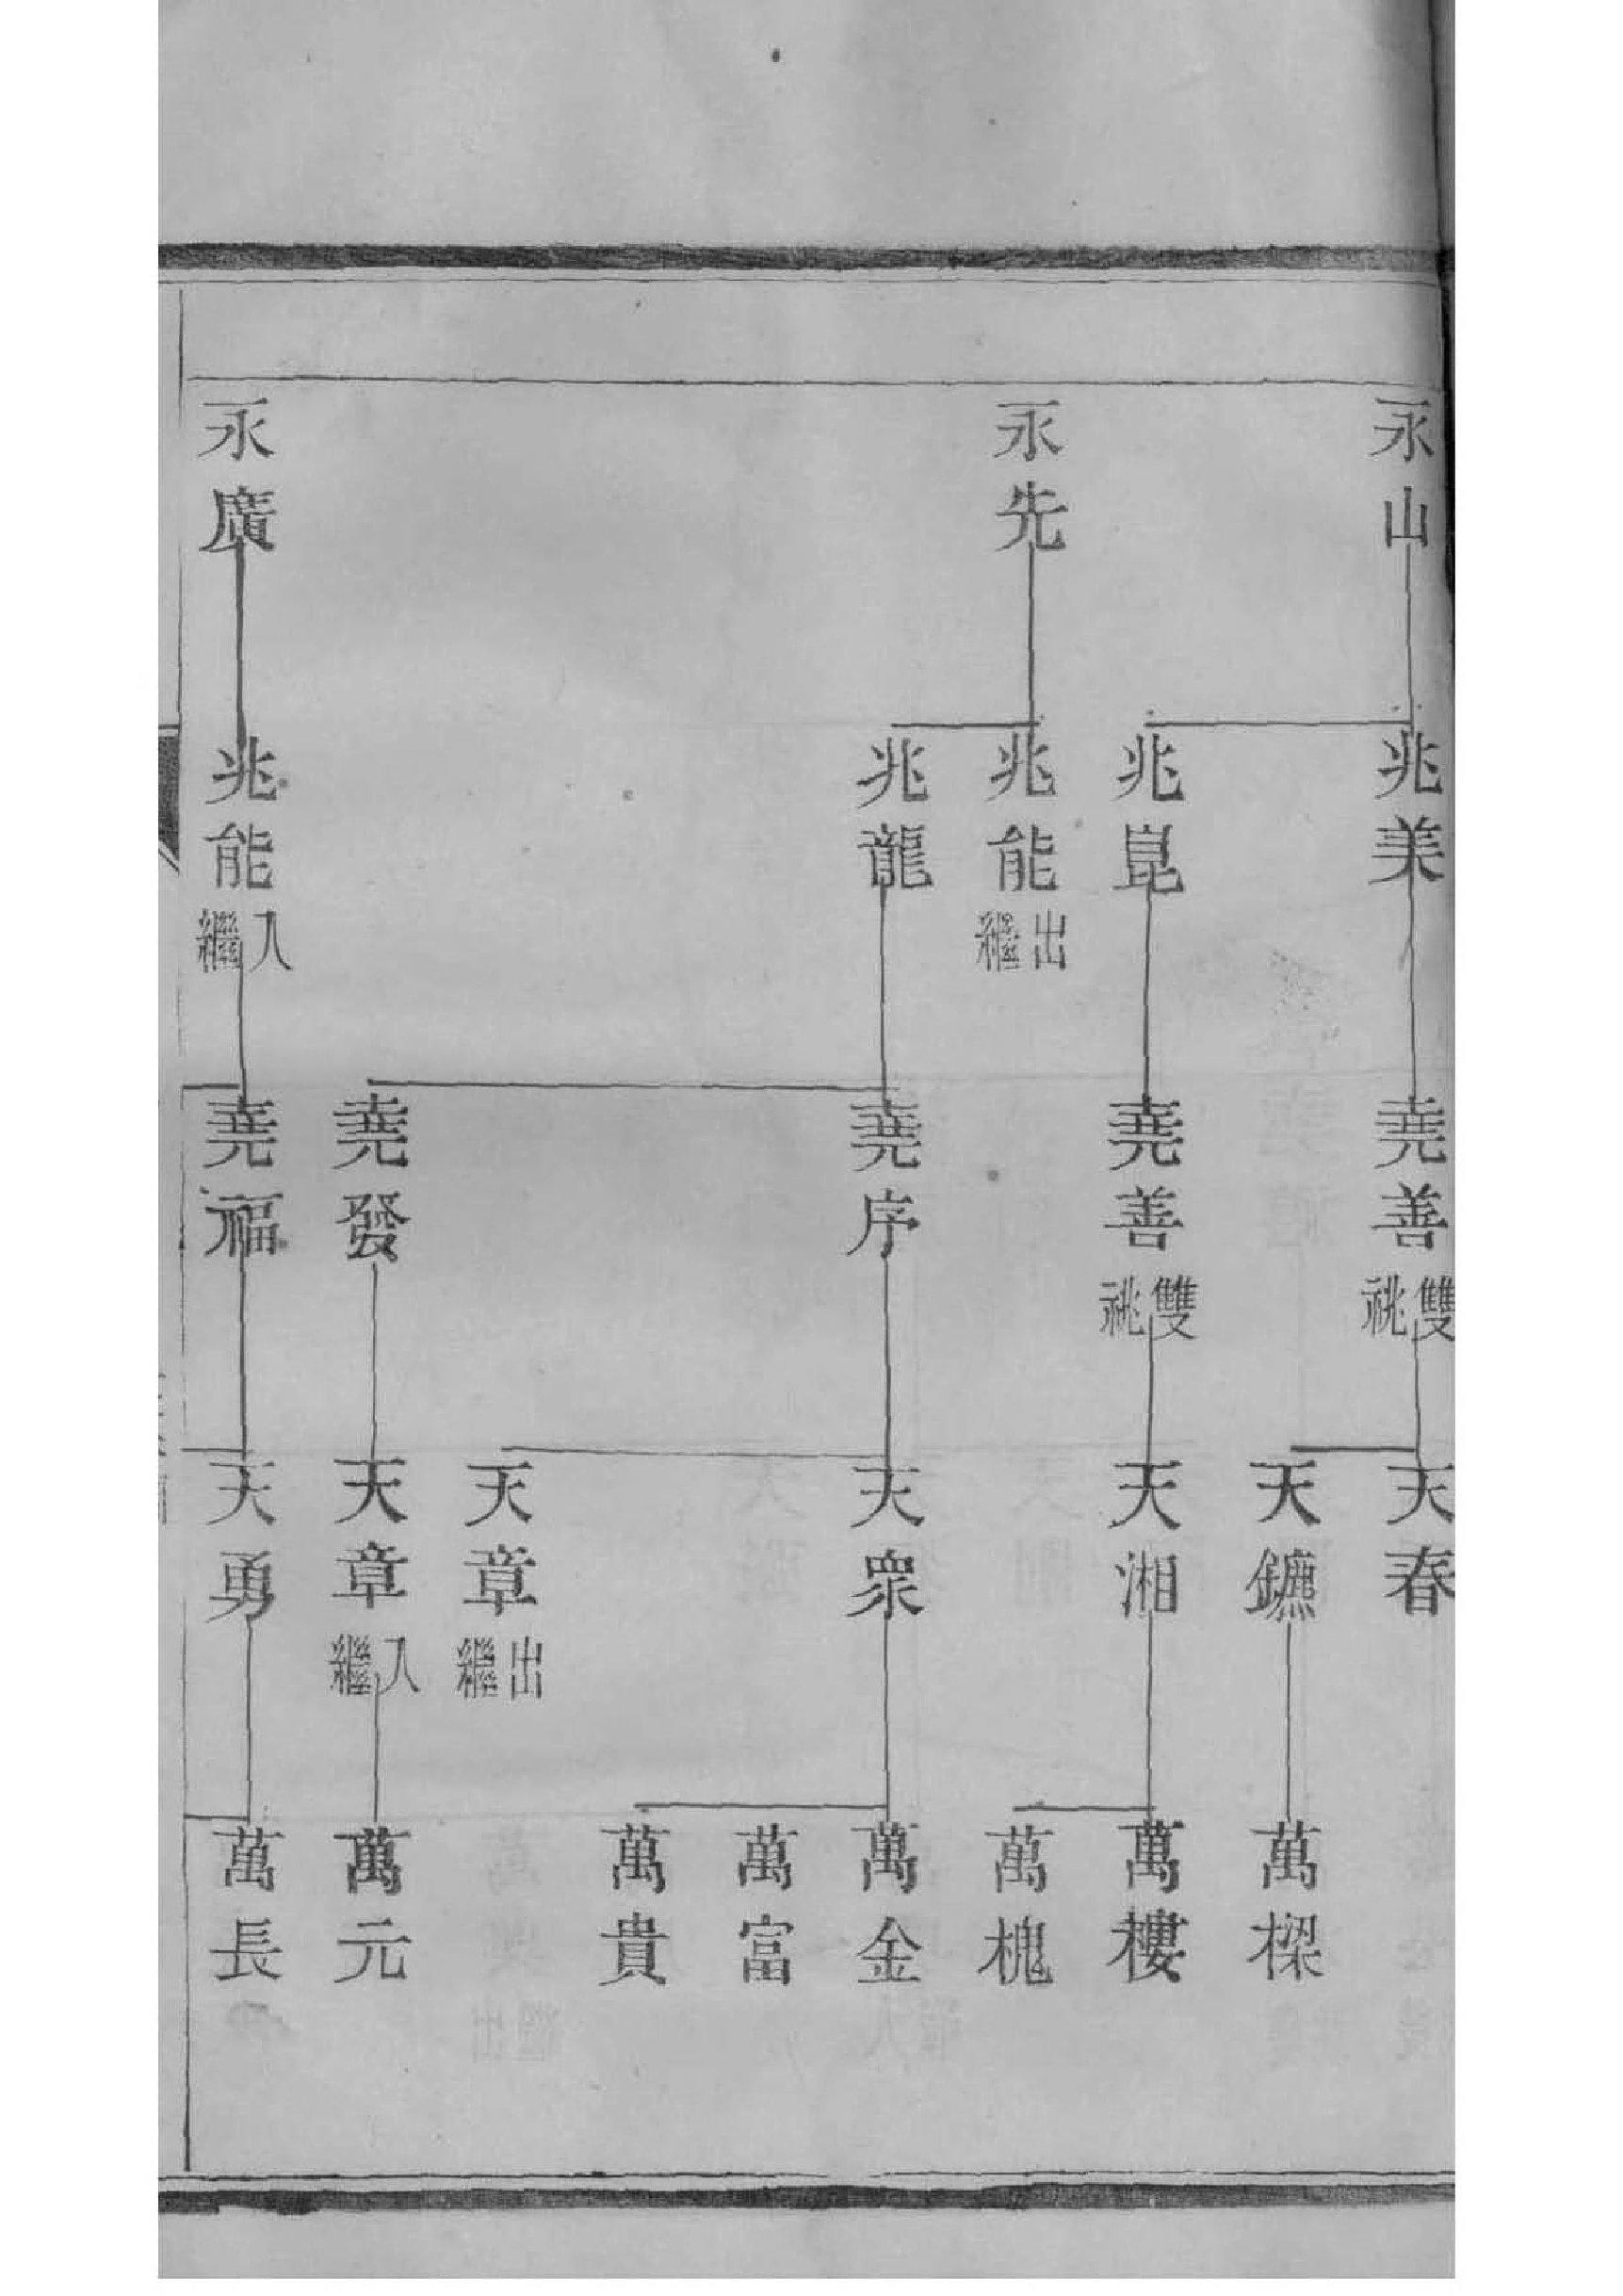 永山
兆美
堯善
雙祧
天春
天鑣
萬樑
兆崑
堯善
雙祧
天湘
萬樓
永先
兆能
出繼
萬槐
兆龍
堯序
天衆
萬金
萬富
萬貴
天章
出繼
堯發
天章
入繼
萬元
永廣
兆能
入繼
堯福
天勇
萬長